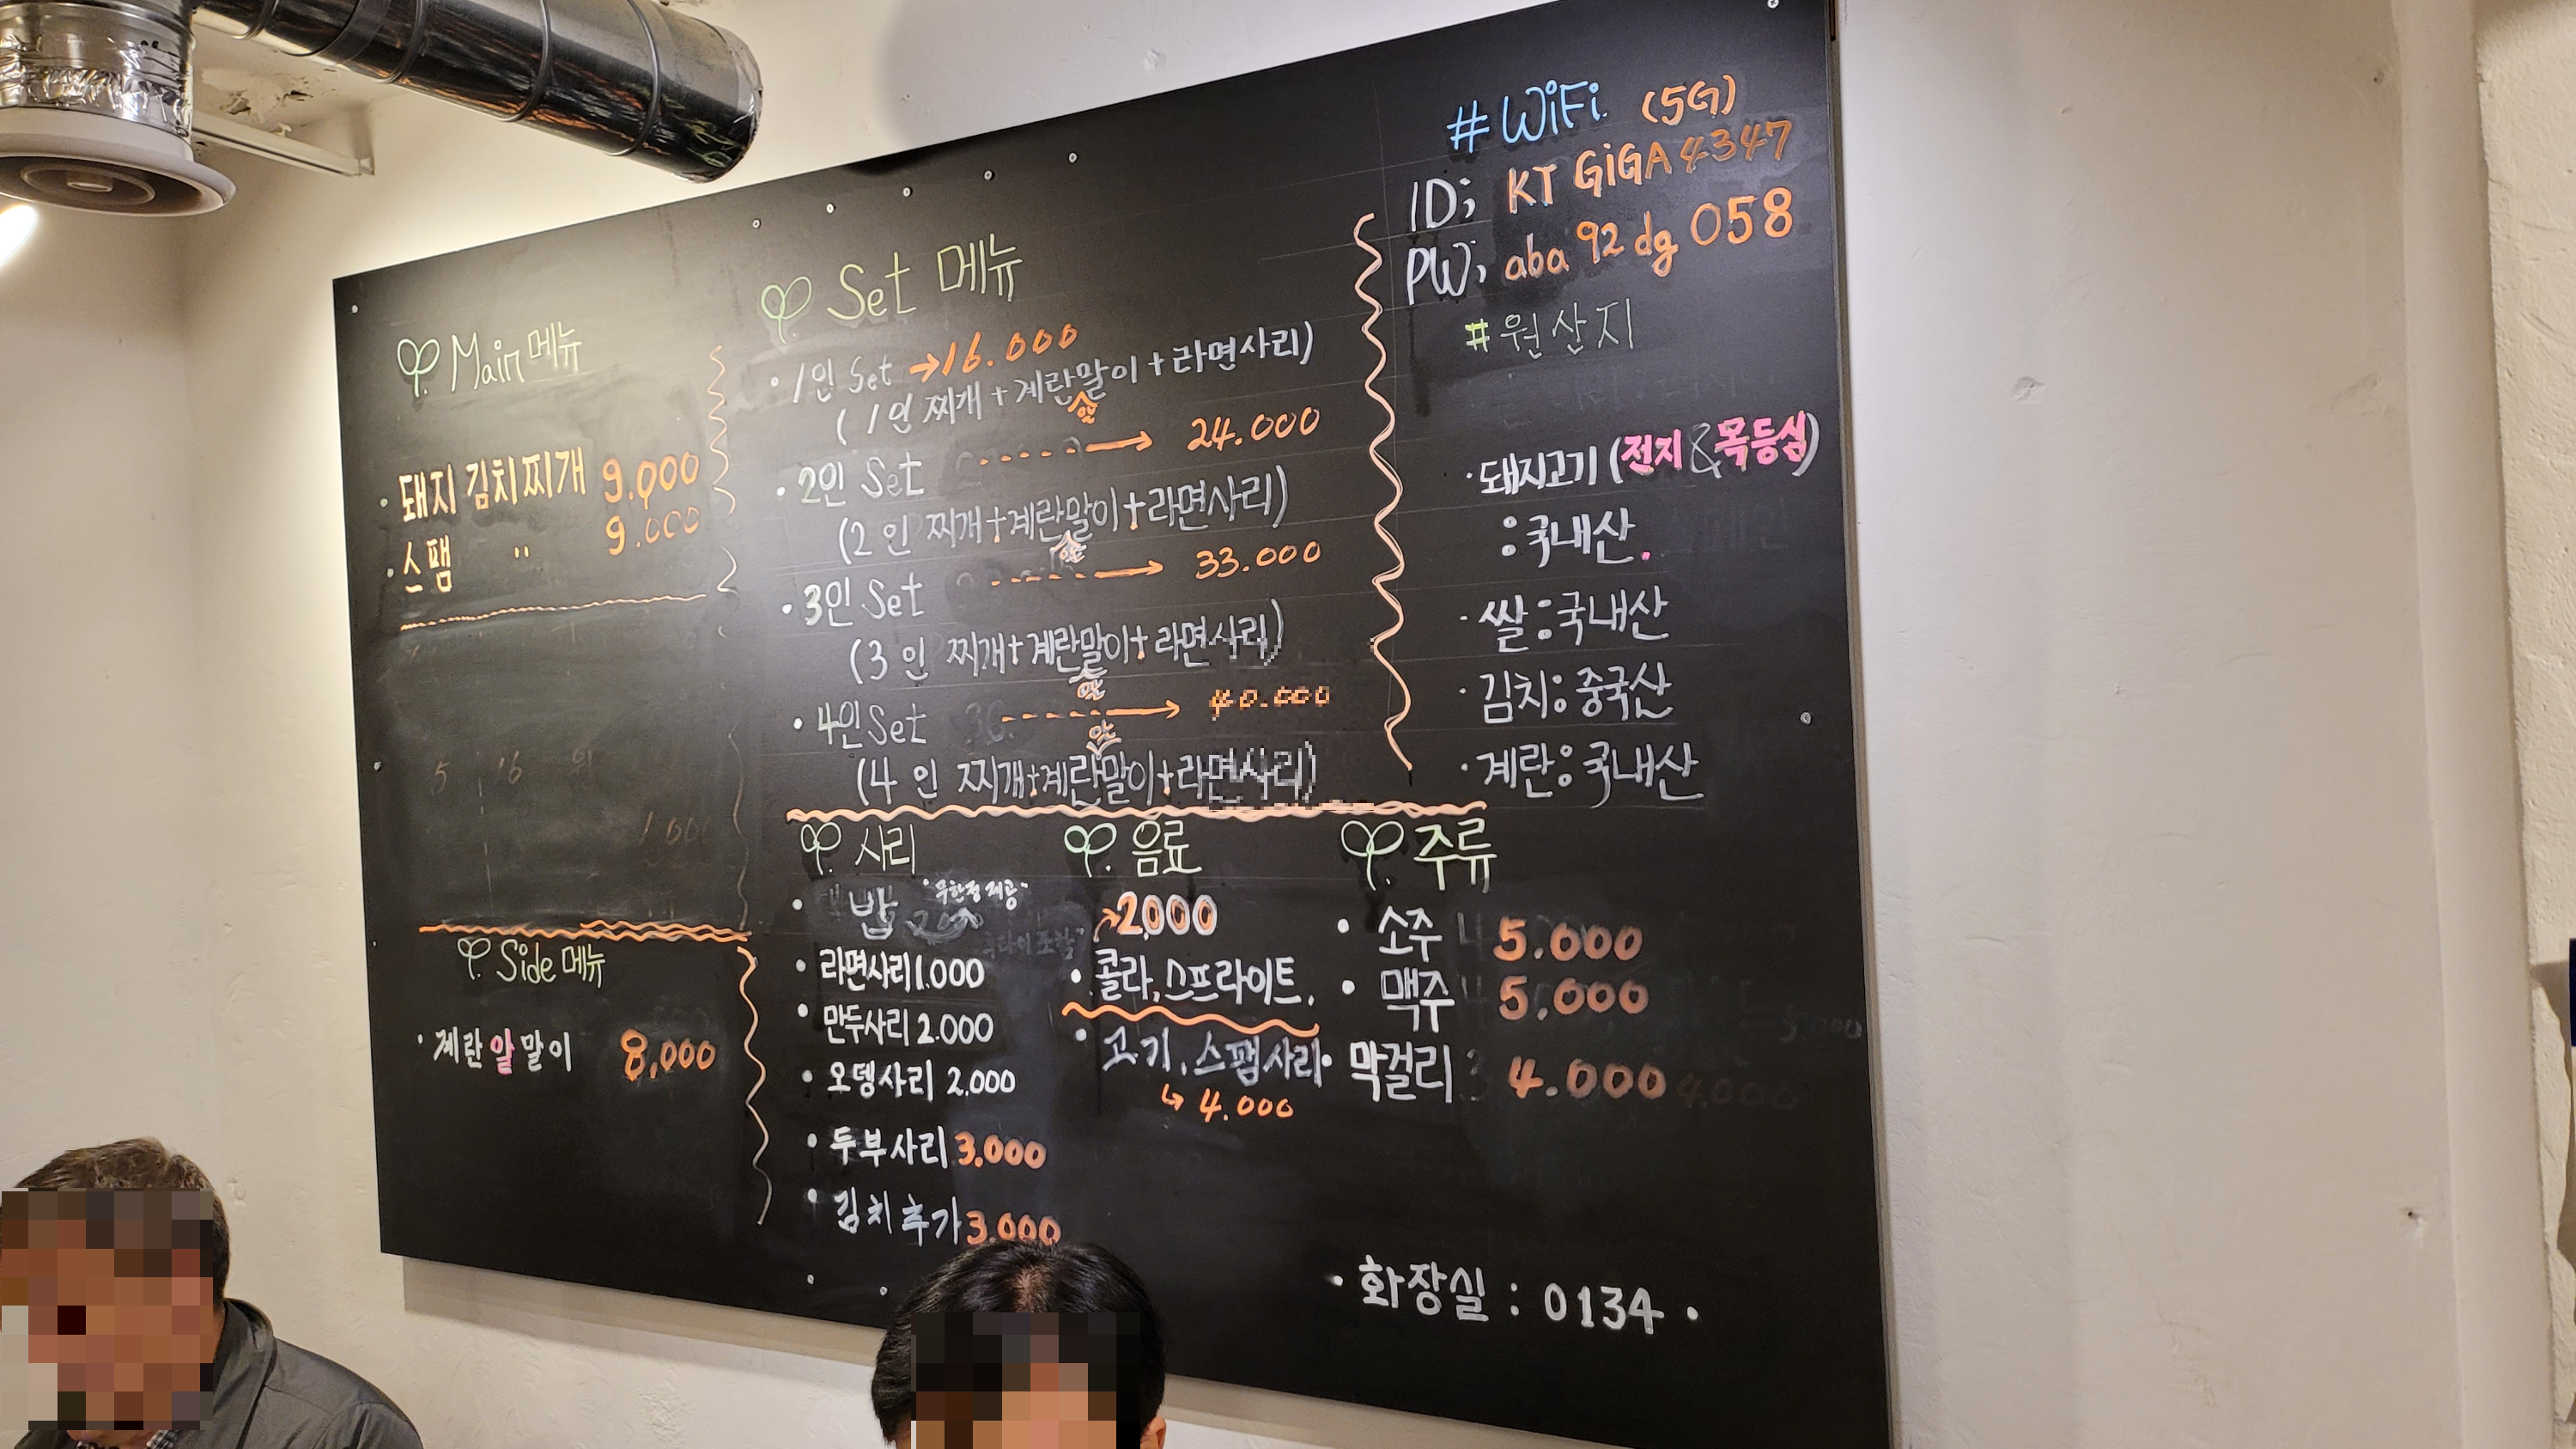 Main 메뉴
· 돼지 김치찌개 9.000
· 스팸 " 9.000
Side 메뉴
· 계란알말이 8,000
Set 메뉴
· 1인 Set → 16.000
(1인 찌개 + 계란말이 + 라면사리)
알
· 2인 Set → 24.000
(2인 찌개+계란말이+라면사리)
알
· 3인 Set → 33.000
(3인 찌개+계란말이+라면사리)
알
· 4인 Set → 40.000
알
(4인 찌개+계란말이+라면사리)
사리
· 밥 "무한정 제공"
· 라면사리 1.000
· 만두사리 2.000
· 오뎅사리 2.000
· 두부사리 3.000
· 김치추가 3.000
음료
2,000
· 콜라, 스프라이트,
· 고기, 스팸사리
↳ 4.000
주류
· 소주 5.000
· 맥주 5.000
· 막걸리 4.000
#WiFi (5G)
ID; KT GiGA 4347
PW; aba 92 dg 058
#원산지
· 돼지고기 (전지 & 목등심)
: 국내산.
· 쌀 : 국내산
· 김치 : 중국산
· 계란 : 국내산
· 화장실 : 0134 ·